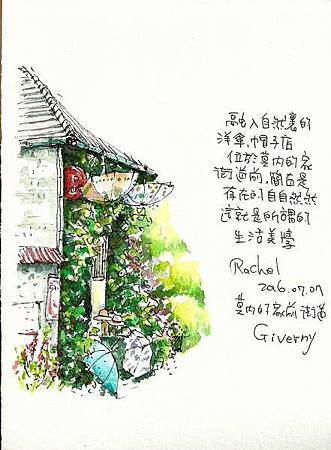 融入自然裏的
洋傘,帽子店
位於莫內的家
街道尚,簡直是
存在的自自然然
這就是所謂的
生活美學
Rachel
2016.07.07
莫內的家前街道
Giverny